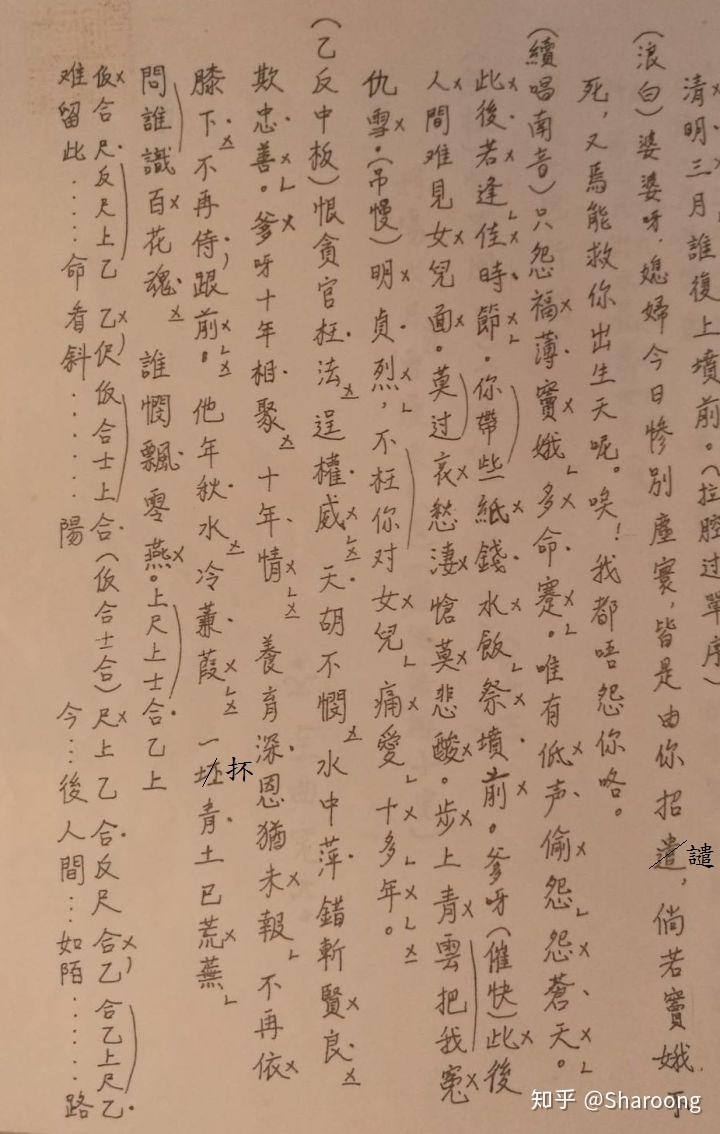 清明三月誰復上墳前。(拉腔过單序)
(浪白)婆婆呀,媳婦今日慘別塵寰,皆是由你招遣,倘若竇娥一丁
譴
死,又焉能救你出生天呢。唉!我都唔怨你咯。
(續唱南音)只怨福薄竇娥多命蹇。唯有低声偷怨怨蒼天。
此後若逢佳時節。你帶些紙錢水飯祭墳前。爹呀(催快)此後
人間难見女兒面。莫过哀愁淒愴莫悲酸。步上青雲把我寃
仇雪。(吊慢)明貞烈,不枉你对女兒痛愛十多年。
(乙反中板)恨貪官枉法逞權威天胡不憫水中萍錯斬賢良
欺忠善。爹呀十年相聚十年情養育深恩猶未報不再依
膝下不再侍,跟前。他年秋水冷蒹葭一坯青土已荒蕪
抔
問誰識百花魂誰憫飄零燕。上尺上士合乙上
伬合尺反尺上乙乙伬伬合士上合(伬合士合)尺上乙合反尺合乙合乙上尺乙
难留此.....命看斜......陽今...後人間...如陌......路
知乎 @Sharoong